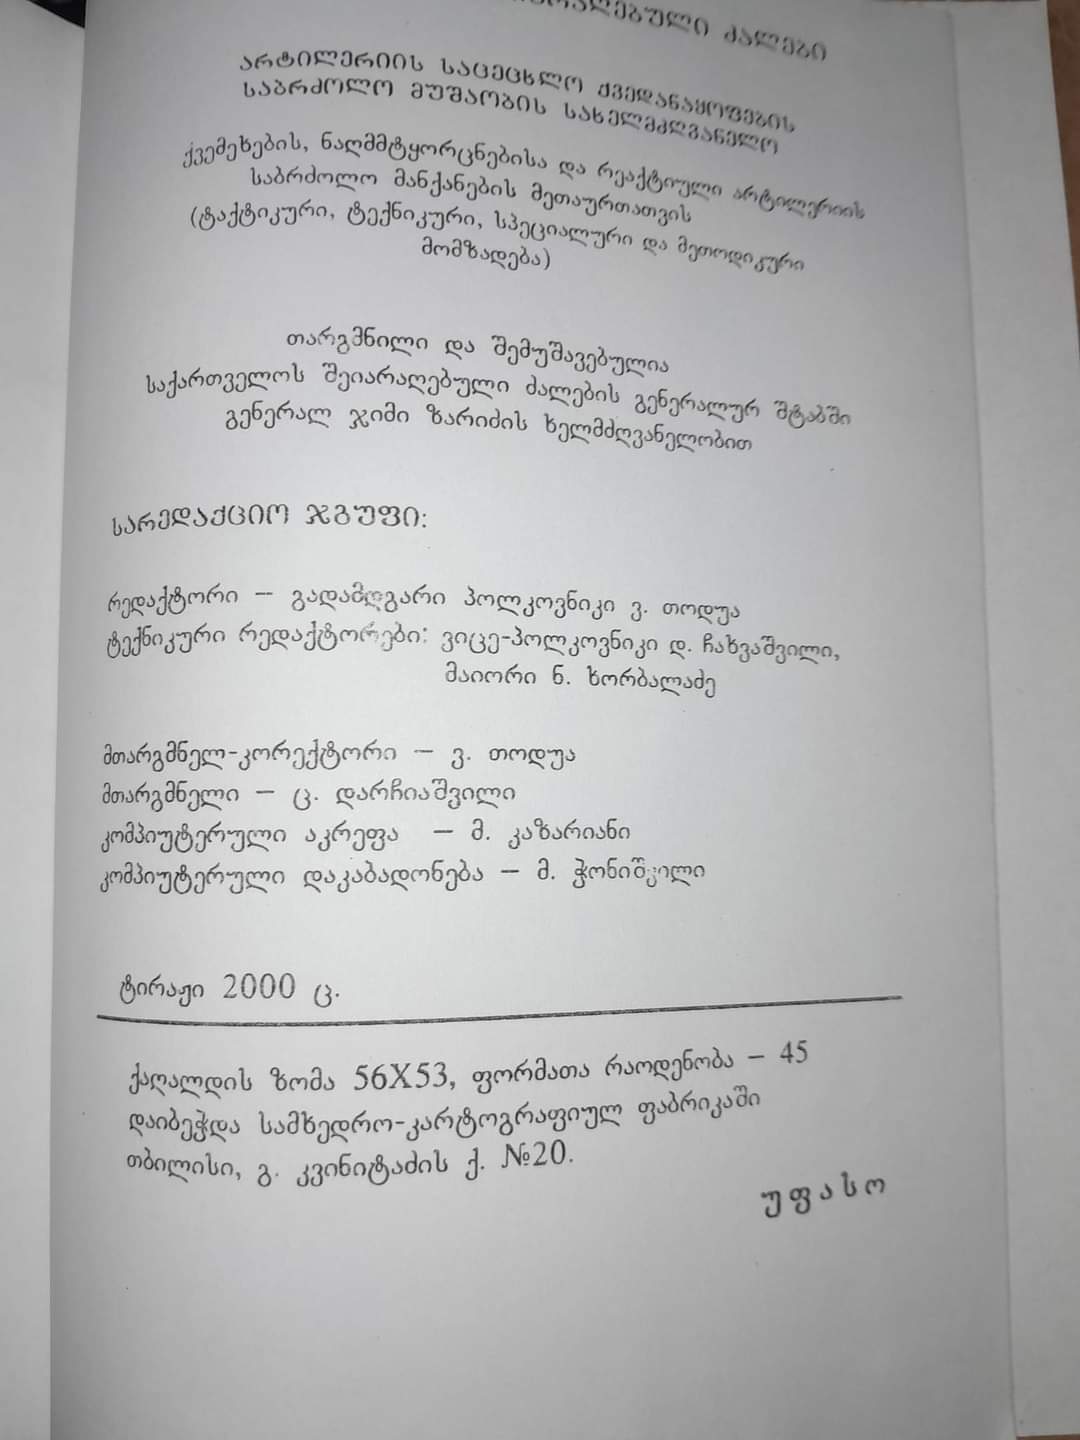 ძალები
არტილერიის საცეცხლო ქვედანაყოფების
საბრძოლო მუშაობის სახელმძღვანელო
ქვემეხების, ნაღმმტყორცნებისა და რეაქტიული არტილერიის
საბრძოლო მანქანების მეთაურთათვის
(ტაქტიკური, ტექნიკური, სპეციალური და მეთოდიკური
მომზადება)
თარგმნილი და შემუშავებულია
საქართველოს შეიარაღებული ძალების გენერალურ შტაბში
გენერალ ჯიმი ზარიძის ხელმძღვანელობით
სარედაქციო ჯგუფი:
რედაქტორი – გადამდგარი პოლკოვნიკი ვ. თოდუა
ტექნიკური რედაქტორები: ვიცე-პოლკოვნიკი დ. ჩახვაშვილი,
მაიორი ნ. ხორბალაძე
მთარგმნელ-კორექტორი – ვ. თოდუა
მთარგმნელი – ც. დარჩიაშვილი
კომპიუტერული აკრეფა – მ. კაზარიანი
კომპიუტერული დაკაბადონება – მ. ჭონიშვილი
ტირაჟი 2000 ც.
ქაღალდის ზომა 56X53, ფორმათა რაოდენობა – 45
დაიბეჭდა სამხედრო-კარტოგრაფიულ ფაბრიკაში
თბილისი, გ. კვინიტაძის ქ. №20.
უფასო